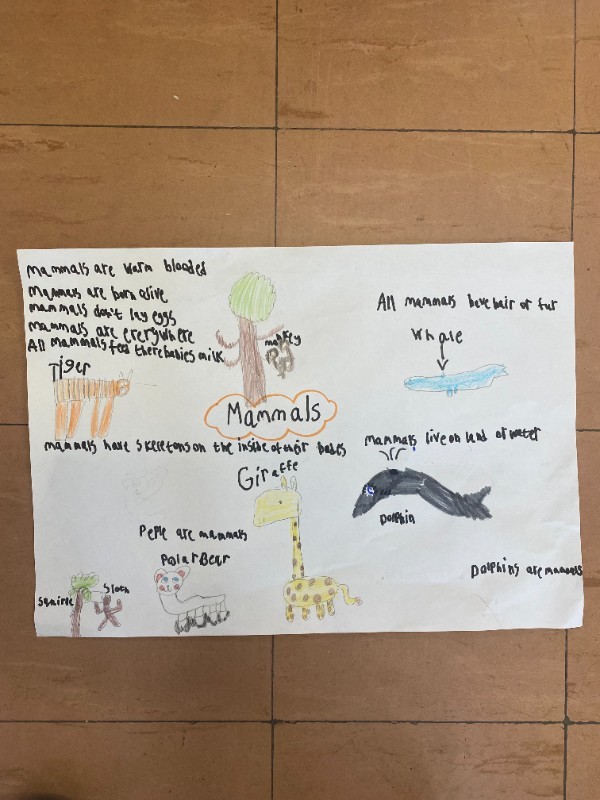 Mammals are warm blooded
Mammals are born alive
mammals don't lay eggs
mammals are everywhere
All mammals feed there babies milk
Tiger
monkey
All mammals have hair or fur
Whale
Mammals
mammals have skeletons on the inside of their bodes
mammals live on land or water
Giraffe
Dolphin
Peple are mammals
Polar Bear
Dolphins are mammals
Squirle
Sloth